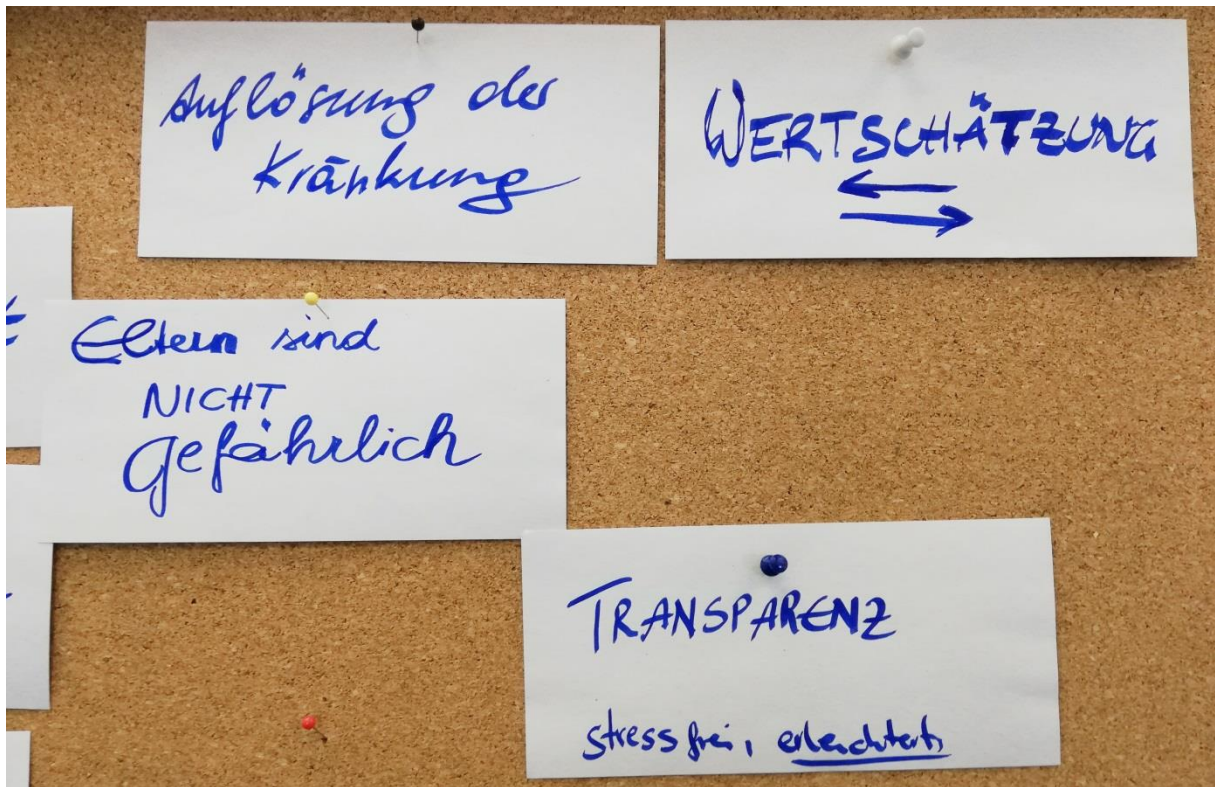 Auflösung der
Kränkung
WERTSCHÄTZUNG
Eltern sind
NICHT
gefährlich
TRANSPARENZ
stressfrei, erleichtert,